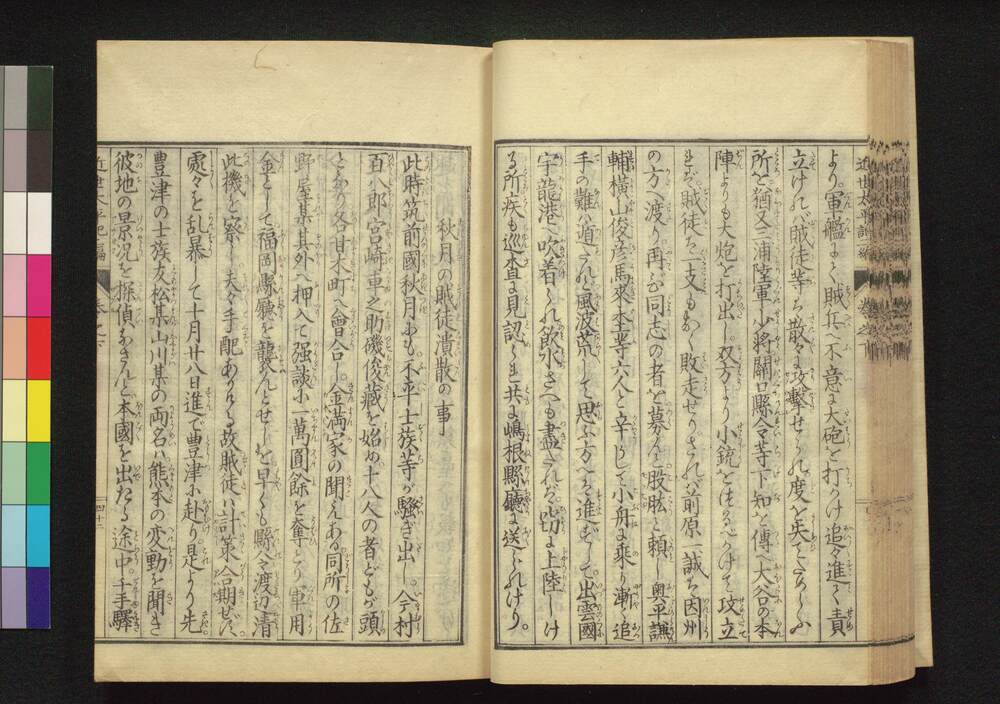 より。軍艦にて賊兵へ不意に大砲を打かけ追々進んで責
立けれバ賊徒等ハ散々に攻撃せられ度を失てたゞよふ
所を猶又三浦陸軍少将關口縣令等下知を傳へ大谷の本
陣よりも大炮を打出し。双方より小銃をはなちかけて攻立
れバ。賊徒ハ一支もなく敗走せりされバ前原一誠ハ因州
の方へ渡り。再び同志の者を募らんと股肱と頼し奥平謙
輔橫山俊彦馬來木工等六人と辛うじて小舟に乘り漸く追
手の難ハ遁これど風波荒して思ふ方へを進むして出雲國
宇龍港へ吹着られ飲水さへも盡たれバ山に上陸しけ
る所疾も巡査に見認られ共に嶋根縣廳に送られけり。
秋月の賊徒潰散の事
此時筑前國秋月にも。不平士族等が騒ぎ出し。今村
百八郎宮崎車之助磯俊藏を始め十八人の者どもが頭
となり各甘木町へ會合し。金満家の聞えある同所の佐
野屋某其外へ押入て强談に一萬圓餘を奪とり軍用
金として福岡縣廳を襲んとせしを早くも縣令渡辺清
此機を察し。夫々手配ありける故賊徒ハ計策合期せバ
處々を乱暴して十月廿八日進で豊津に赴り。是より先
豊津の士族友松某山川某の両名ハ熊本の変動を聞き
彼地の景况を探偵なさんと本國を出たる途中。千手驛
近世太平記二編 巻之下
四十二